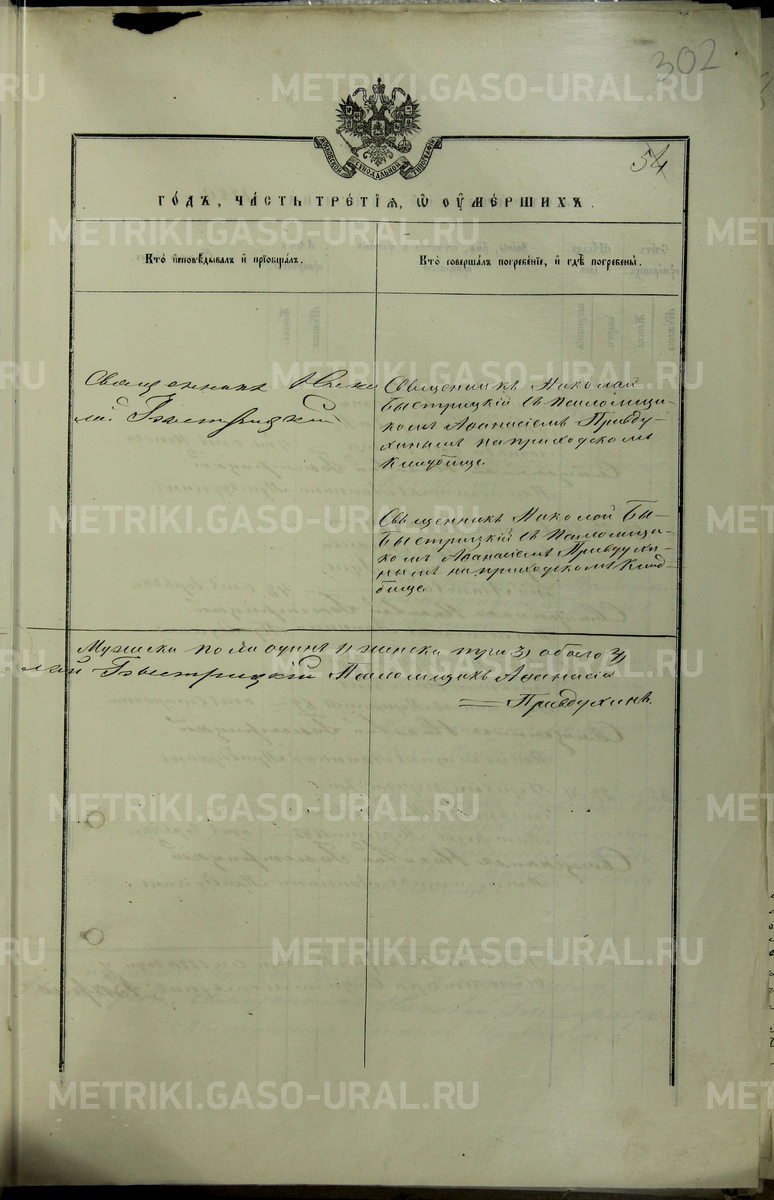 302
54
МОСКОВСКОЙ СѴНОДАЛЬНОЙ ТИПОГРАФІИ
ГО́ДЪ, ЧА́СТЬ ТРЕ́ТІѦ, Ѡ҆ ОУ҆МЕ́РШИХЪ.
Кто̀ и҆сповѣ́дывалъ и҆ прїѡбща́лъ.
Кто̀ соверша́лъ погребе́нїе, и҆ гдѣ̀ погребены̀.
Священникъ Нико
лай Быстрицкій
Священникъ Николай
Быстрицкій съ Псаломщи-
комъ Аѳанасіемъ Правду-
хинымъ на приходскомъ
кладбище.
Священникъ Николай Бы-
Быстрицкій съ Псаломщи-
комъ Аѳанасіемъ Правдухи-
нымъ на приходскомъ клад-
бище.
Мужска пола одинъ и женска обоего
лай Быстрицкій Псаломщикъ Аѳанасій
Правдухинъ.
METRIKI.GASO-URAL.RU